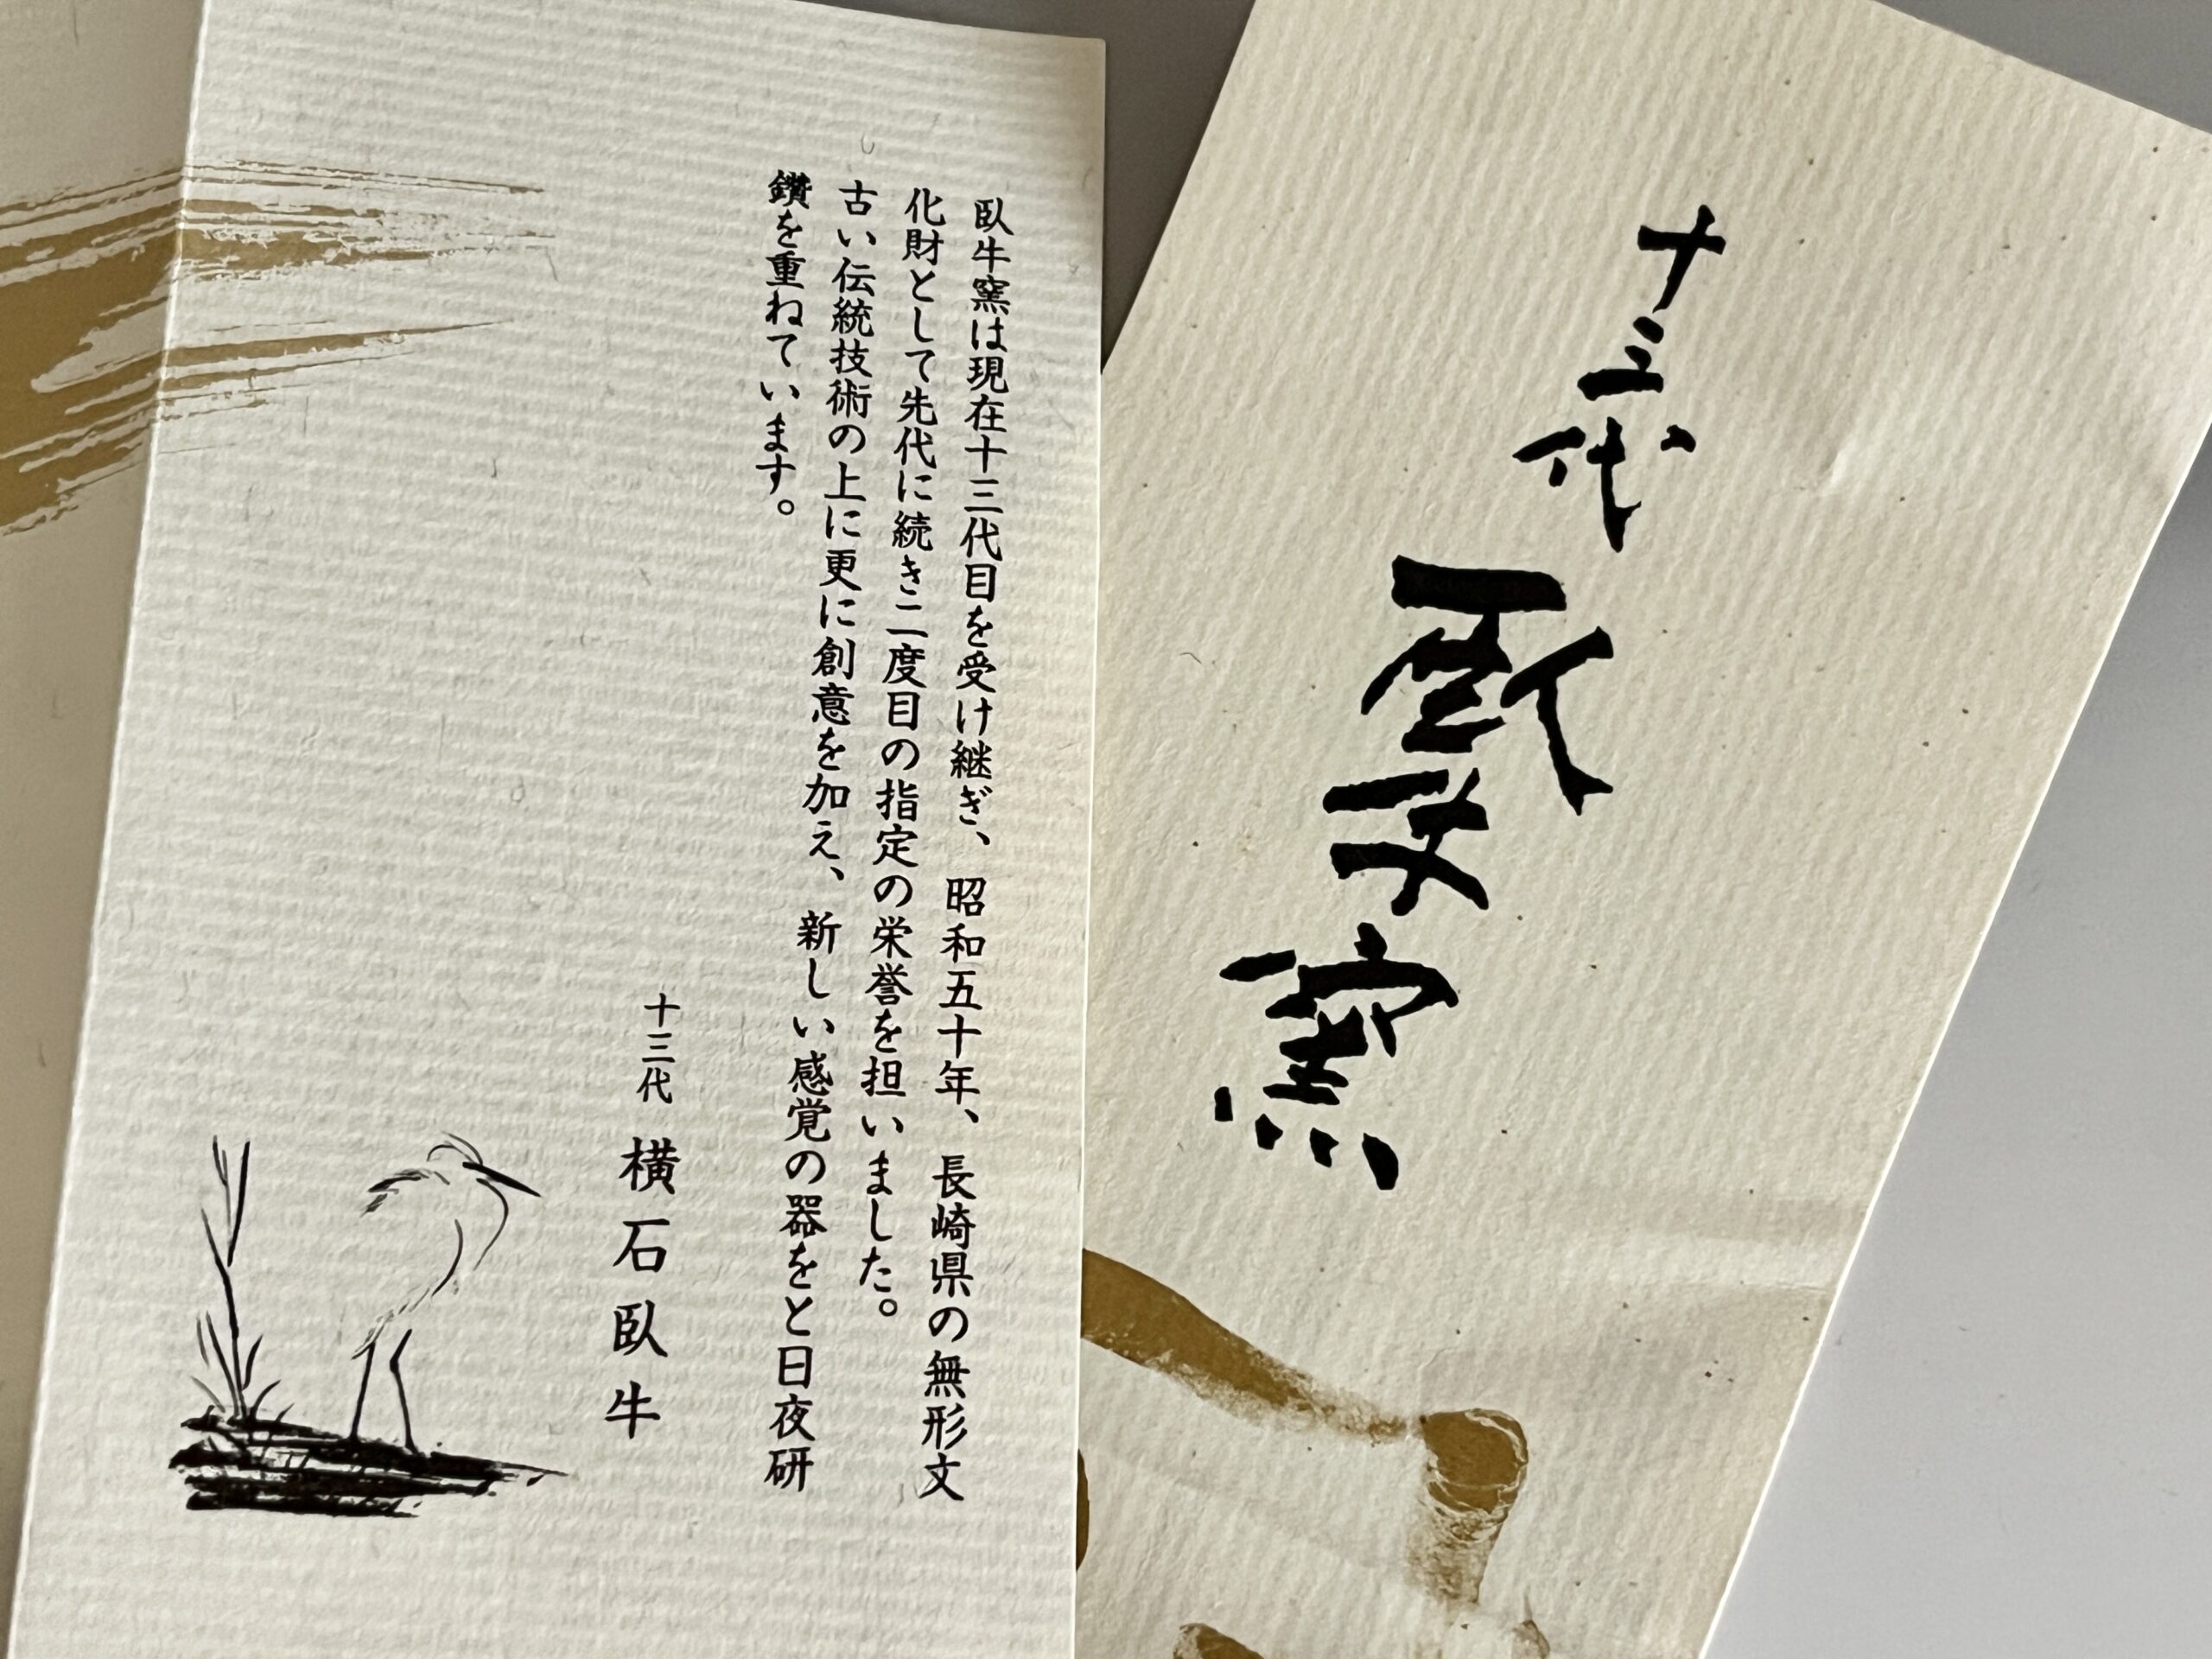 十三代
臥牛窯
臥牛窯は現在十三代目を受け継ぎ、昭和五十年、長崎県の無形文
化財として先代に続き二度目の指定の栄誉を担いました。
古い伝統技術の上に更に創意を加え、新しい感覚の器をと日夜研
鑽を重ねています。
十三代 横石臥牛